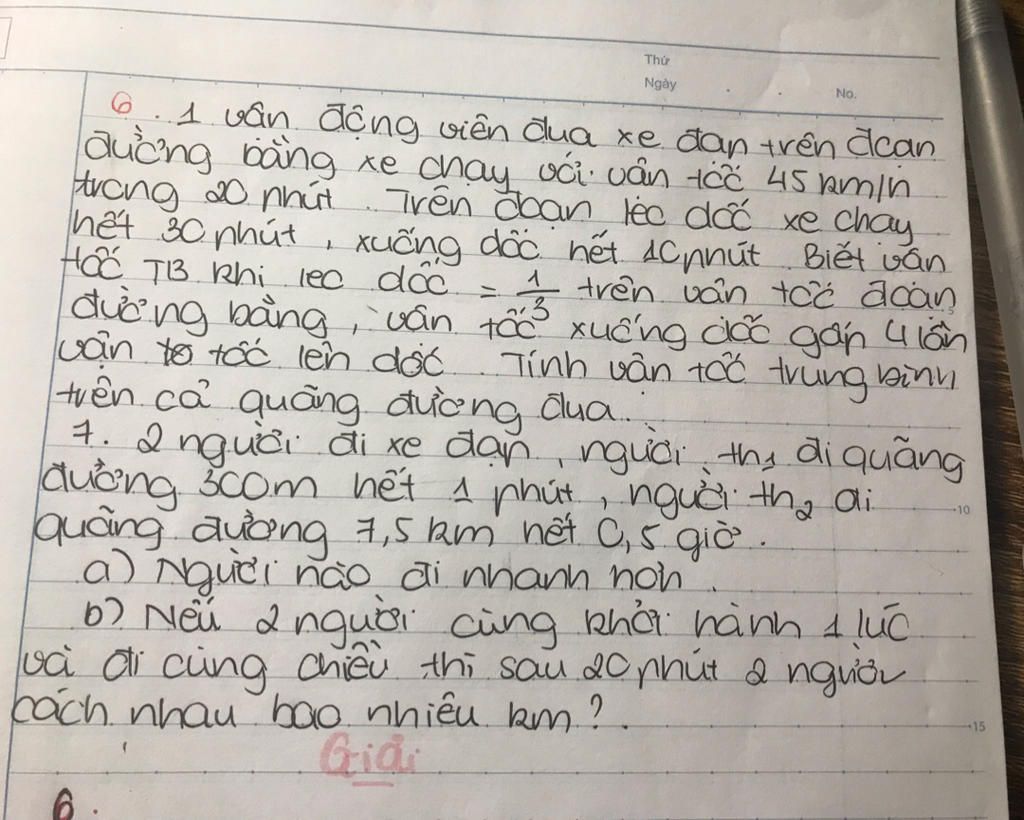 Thứ
Ngày
No.
6. 1 vận động viên đua xe đạp trên đoạn
đường bằng xe chạy với vận tốc 45 km/h
trong 20 phút. Trên đoạn leo dốc xe chạy
hết 30 phút, xuống dốc hết 10 phút. Biết vận
tốc TB khi leo dốc = 1/3 trên vận tốc đoạn
đường bằng, vận tốc xuống dốc gấp 4 lần
vận tô tốc lên dốc. Tính vận tốc trung bình
trên cả quãng đường đua.
7. 2 người đi xe đạp, người th1 đi quãng
đường 300m hết 1 phút, người th2 đi
10
quãng đường 7,5 km hết 0,5 giờ.
a) Người nào đi nhanh hơn.
b) Nếu 2 người cùng khởi hành 1 lúc
và đi cùng chiều thì sau 20 phút 2 người
cách nhau bao nhiêu km?
15
Giải
6.